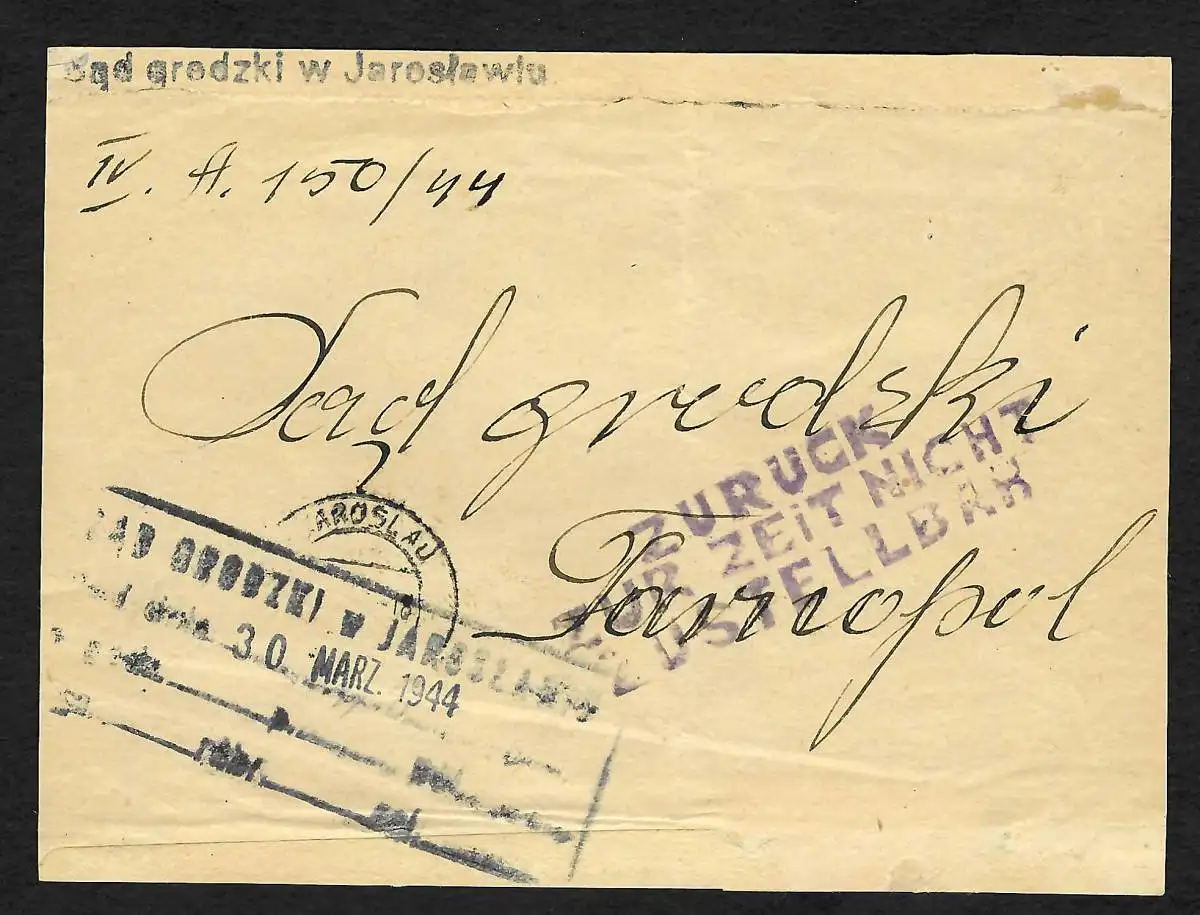 Sąd grodzki w Jarosławiu
IV. A. 150/44
Sąd grodzki
Tarnopol
ZURUCK
ZUR ZEIT NICHT
ZUSTELLBAR
JAROSLAU
SĄD GRODZKI w JAROSŁAWIU
30. MARZ. 1944
rubr. zał.